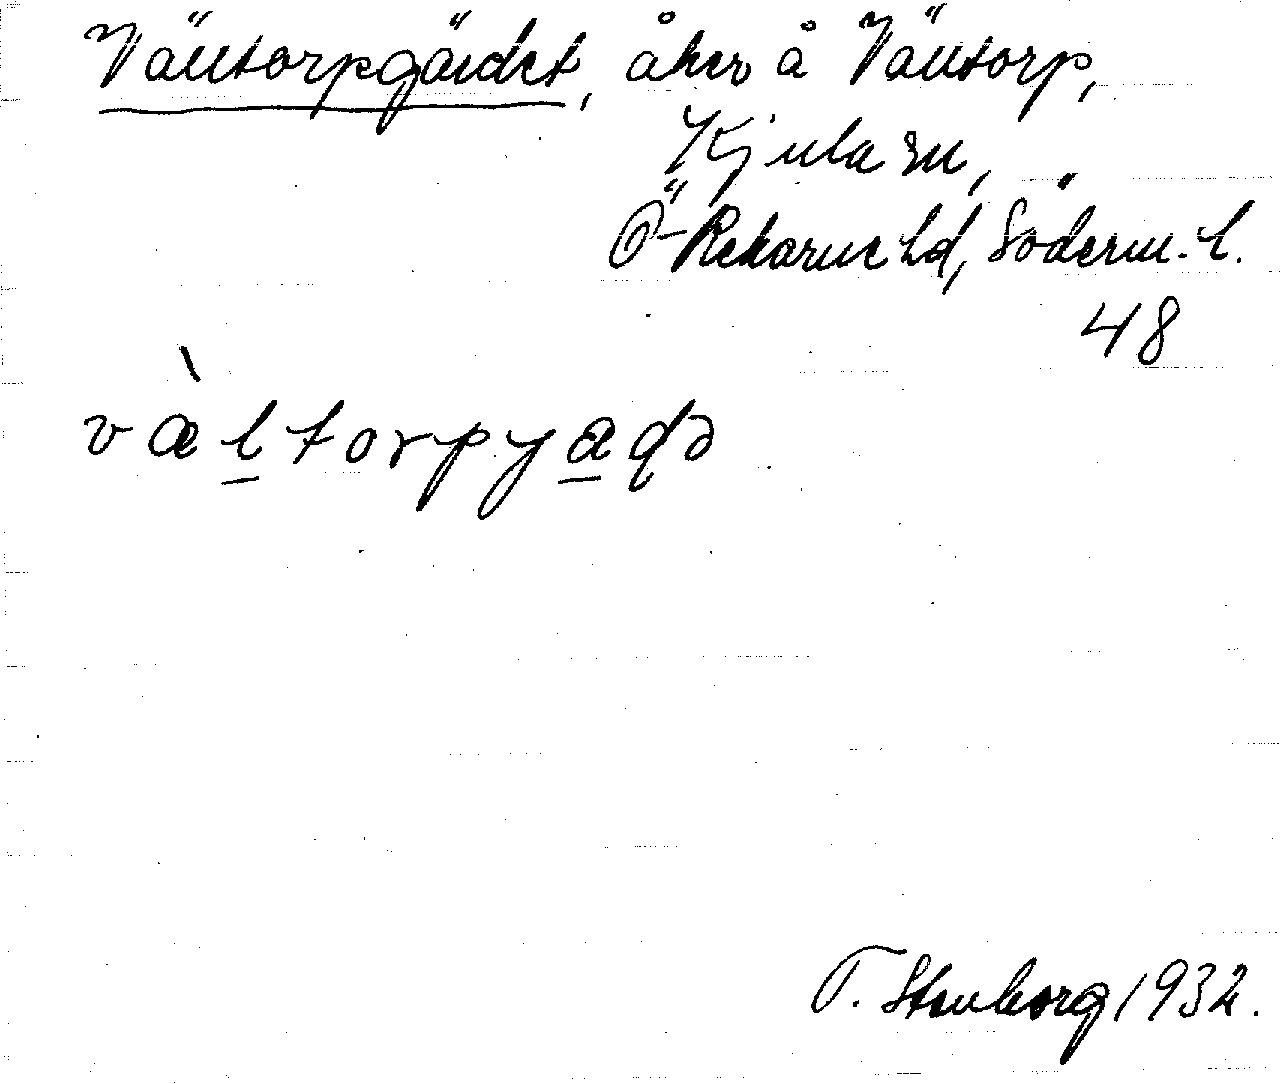 Vältorpgärdet, åker å Vältorp,
Kjula sn,
Ö-Rekarne hd, Söderm. l.
48
vàltorpyaḍə
T. Stenborg 1932.